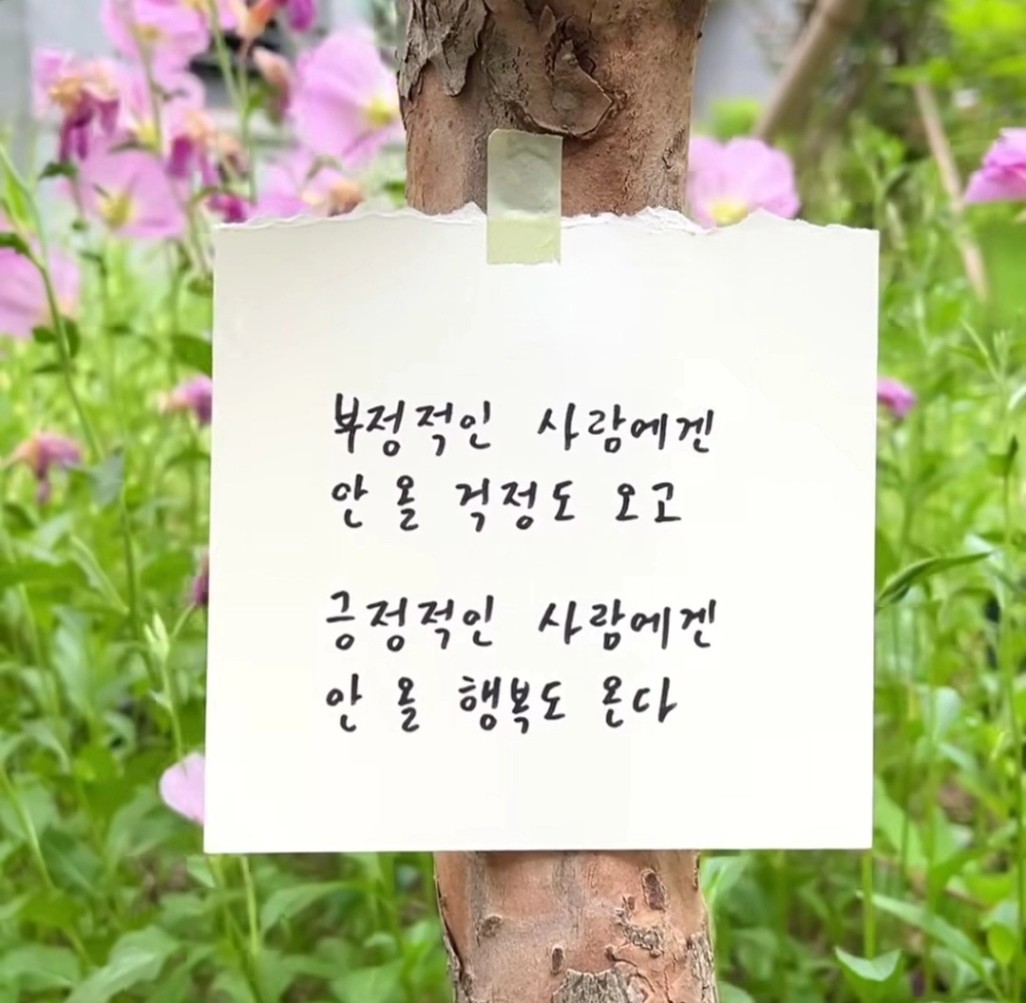 부정적인 사람에겐
안 올 걱정도 오고
긍정적인 사람에겐
안 올 행복도 온다